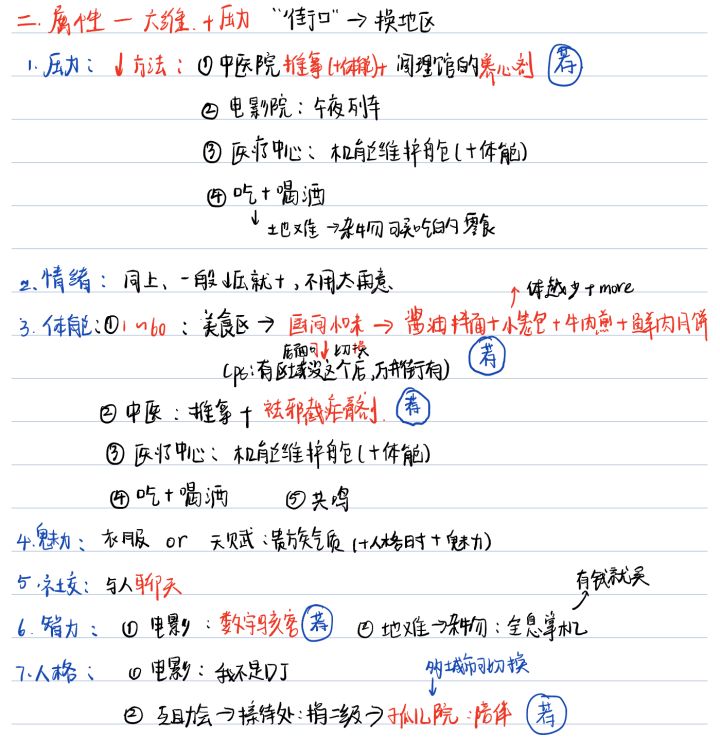 二. 属性 — 六维 + 压力 “街口” → 换地区
1. 压力: ↓ 方法: ① 中医院 推拿(+体能) + 调理馆的养心剂 荐
② 电影院: 午夜列车
③ 医疗中心: 机能维护舱(+体能)
④ 吃 + 喝酒
↓ 地难 → 杂物可买吃的零食
2. 情绪: 同上、一般↓压就+, 不用太再意
↑ 体越少 + more
3. 体能: ① in60: 美食区 → 回味 → 酱油拌面 + 小笼包 + 牛肉煎 + 鲜肉月饼
后面可切换
(ps: 有区域没这个店, 有) 荐
② 中医: 推拿 + 祛邪截症剂. 荐
③ 医疗中心: 机能维护舱(+体能)
④ 吃 + 喝酒 ⑤ 共鸣
4. 魅力: 衣服 or 天赋: 贵族气质 (+人格时 + 魅力)
5. 社交: 与人聊天
有钱就买
6. 智力: ① 电影: 数字骇客 荐 ② 地难 → 杂物: 全息掌机
7. 人格: ① 电影: 我不是DJ
城市可切换
② 互助会 → 接待处: 捐二级 → 孤儿院: 陪伴 荐